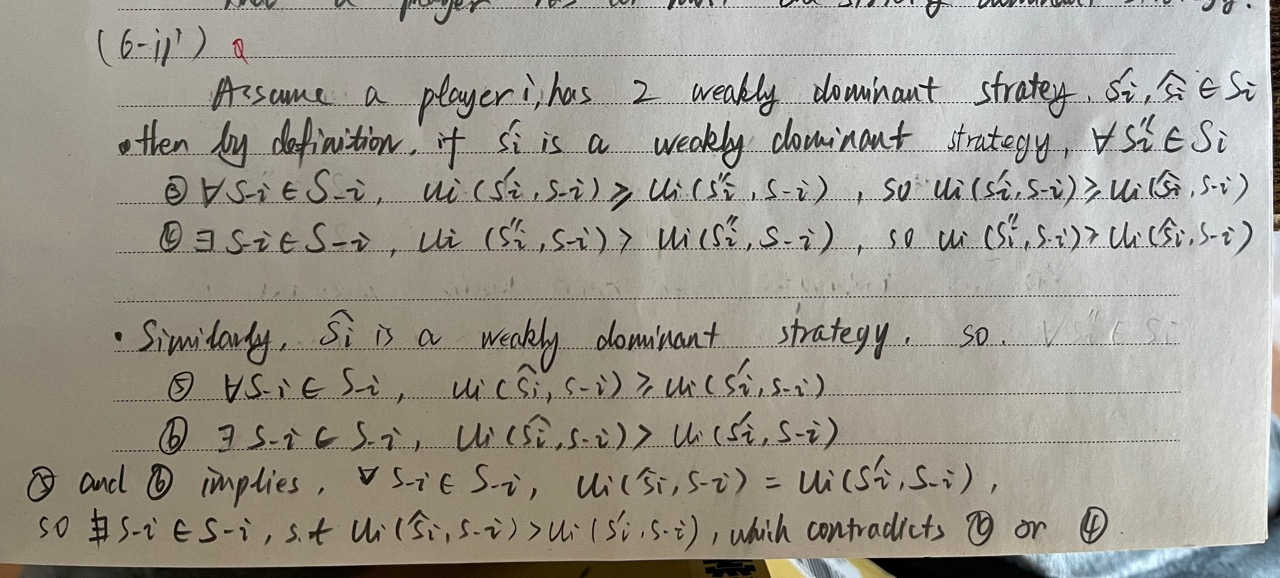 (6-ii)
Assume a player i, has 2 weakly dominant stratey. si', ŝi ∈ Si
• then by definition, if si' is a weakly dominant strategy, ∀ si'' ∈ Si
③ ∀ s-i ∈ S-i, ui (si', s-i) ⩾ ui (si'', s-i), so ui (si', s-i) ⩾ ui (ŝi, s-i)
④ ∃ s-i ∈ S-i, ui (si'', s-i) > ui (si'', s-i), so ui (si'', s-i) > ui (ŝi, s-i)
• Similarly, ŝi is a weakly dominant strategy. so. ∀ s'' ∈ Si
⑤ ∀ s-i ∈ S-i, ui (ŝi, s-i) ⩾ ui (si', s-i)
⑥ ∃ s-i ∈ S-i, ui (ŝi, s-i) > ui (si', s-i)
and implies, ∀ s-i ∈ S-i, ui (ŝi, s-i) = ui (si', s-i),
so ∄ s-i ∈ S-i, s.t ui (ŝi, s-i) > ui (si', s-i), which contradicts or ④.